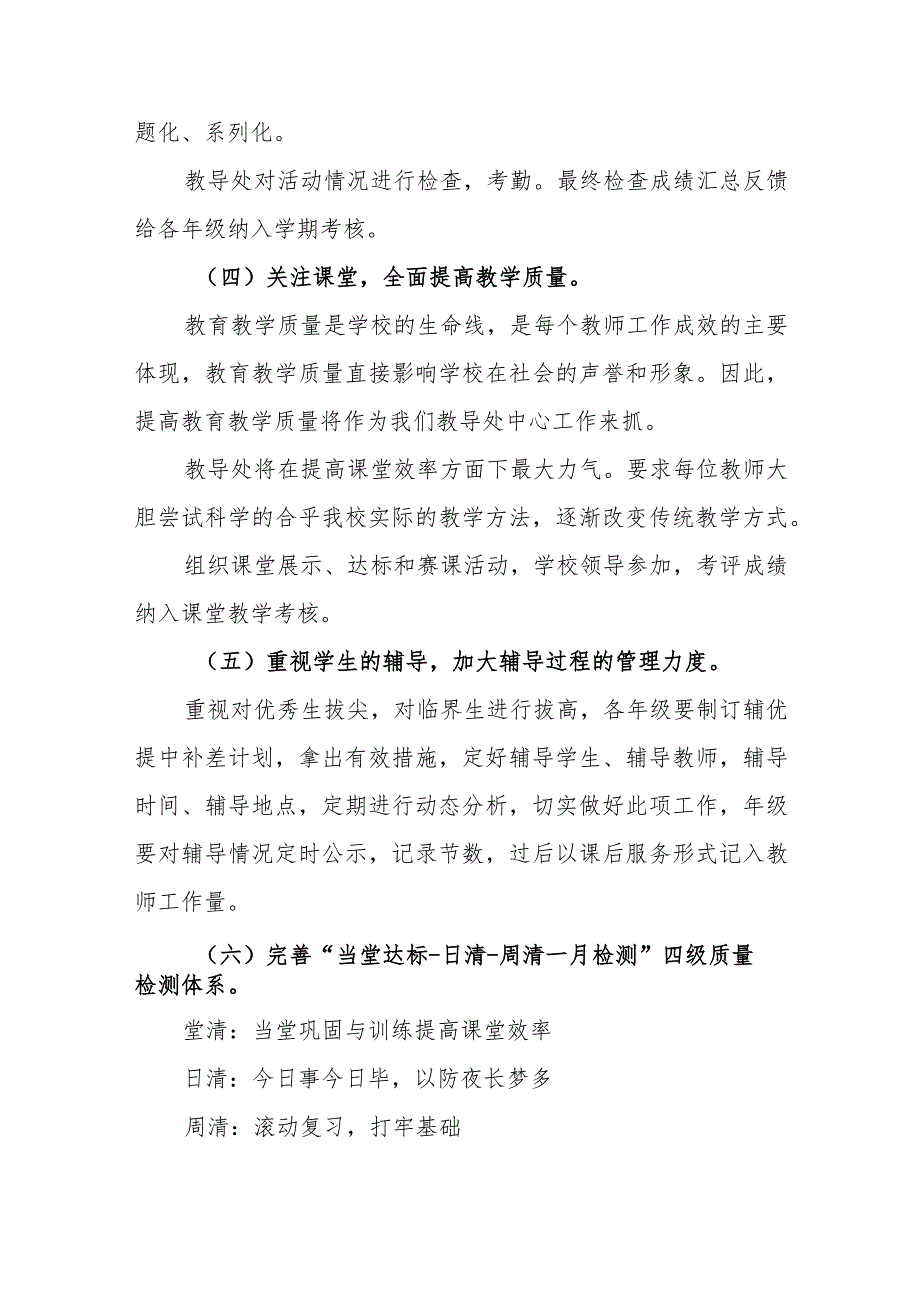 题化、系列化。
教导处对活动情况进行检查，考勤。最终检查成绩汇总反馈
给各年级纳入学期考核。
（四）关注课堂，全面提高教学质量。
教育教学质量是学校的生命线，是每个教师工作成效的主要
体现，教育教学质量直接影响学校在社会的声誉和形象。因此，
提高教育教学质量将作为我们教导处中心工作来抓。
教导处将在提高课堂效率方面下最大力气。要求每位教师大
胆尝试科学的合乎我校实际的教学方法，逐渐改变传统教学方式。
组织课堂展示、达标和赛课活动，学校领导参加，考评成绩
纳入课堂教学考核。
（五）重视学生的辅导，加大辅导过程的管理力度。
重视对优秀生拔尖，对临界生进行拔高，各年级要制订辅优
提中补差计划，拿出有效措施，定好辅导学生、辅导教师，辅导
时间、辅导地点，定期进行动态分析，切实做好此项工作，年级
要对辅导情况定时公示，记录节数，过后以课后服务形式记入教
师工作量。
（六）完善“当堂达标-日清-周清一月检测”四级质量
检测体系。
堂清：当堂巩固与训练提高课堂效率
日清：今日事今日毕，以防夜长梦多
周清：滚动复习，打牢基础